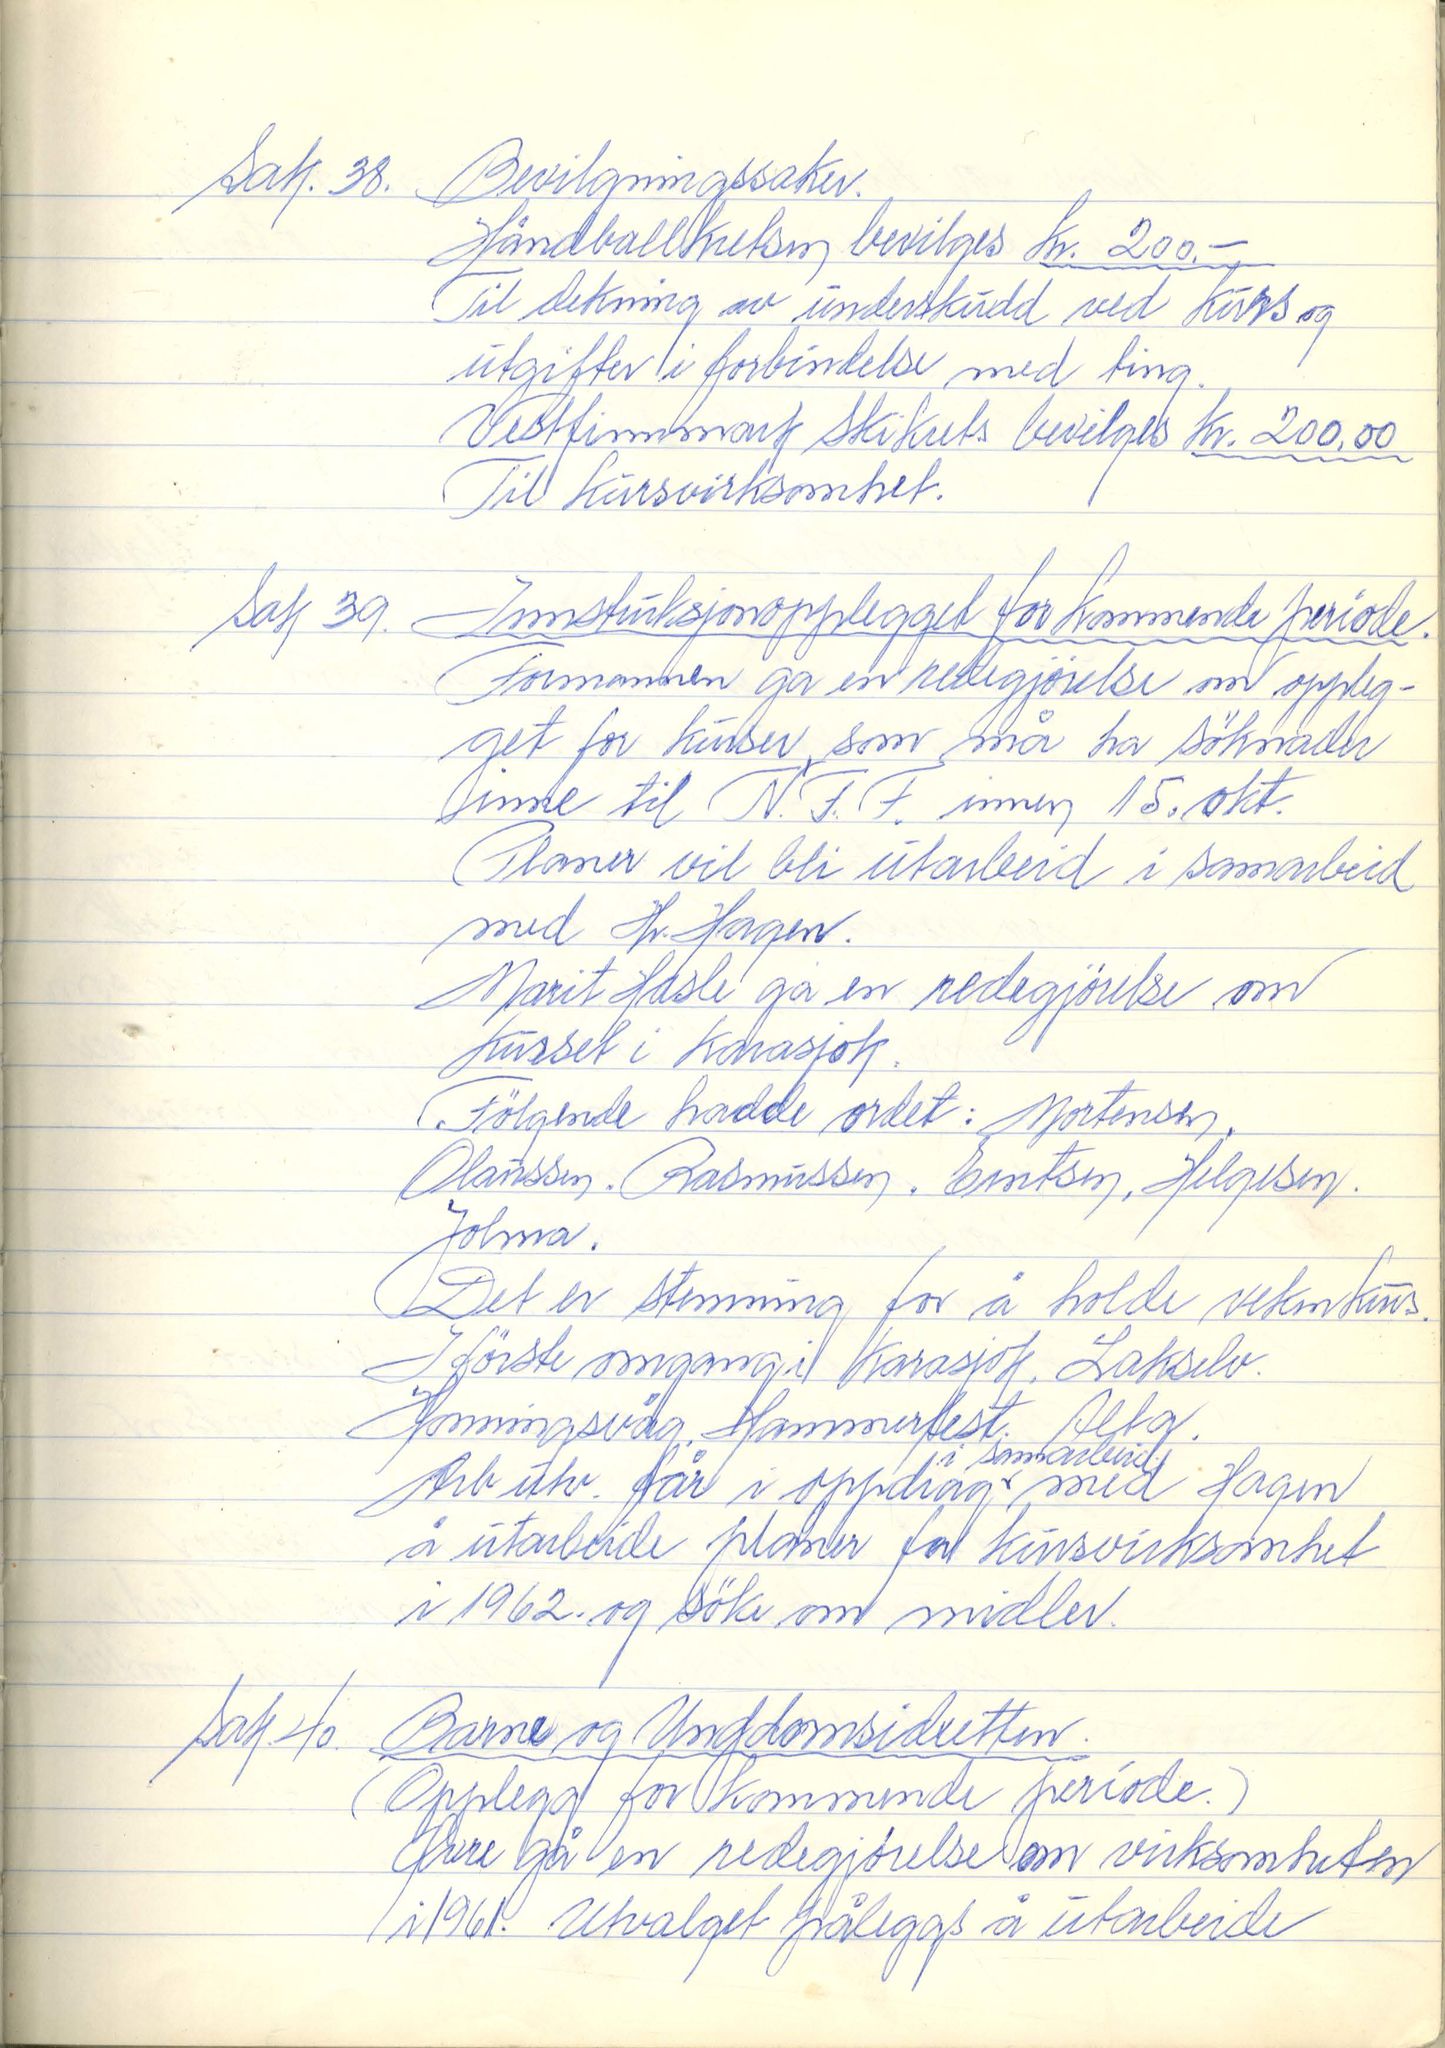 Sak. 38. Bevilgningssaker.
Håndballkretsen bevilges kr. 200.–
Til dekning av underskudd ved kurs og
utgifter i forbindelse med ting.
Vestfinnmark Skikrets bevilges kr. 200,00
Til kursvirksomhet.
Sak 39. Innstuksjonopplegget for kommende periode.
Formannen ga en redegjörelse om oppleg-
get for kurser, som må ha söknader
inne til N.F.F. innen 15. okt.
Planer vil bli utarbeid i samarbeid
med Hr. Hagen.
Marit Hasle ga en redegjörelse om
kurset i Karasjok.
Fölgende hadde ordet: Mortensen.
Olaussen. Rasmussen. Evertsen, Helgesen.
Jolma.
Det er stemning for å holde veken kurs.
I förste omgang i Karasjok. Lakselv.
Honningsvåg. Hammerfest. Alta.
i samarbeid
Arb utv. får i oppdrag med Hagen
å utarbeide planer for kursvirksomhet
i 1962. og söke om midler.
Sak. 40. Barne og Ungdomsidretten.
(Opplegg for kommende periode.)
ga en redegjörelse om virksomheten
i 1961. Utvalget påleggs å utarbeide